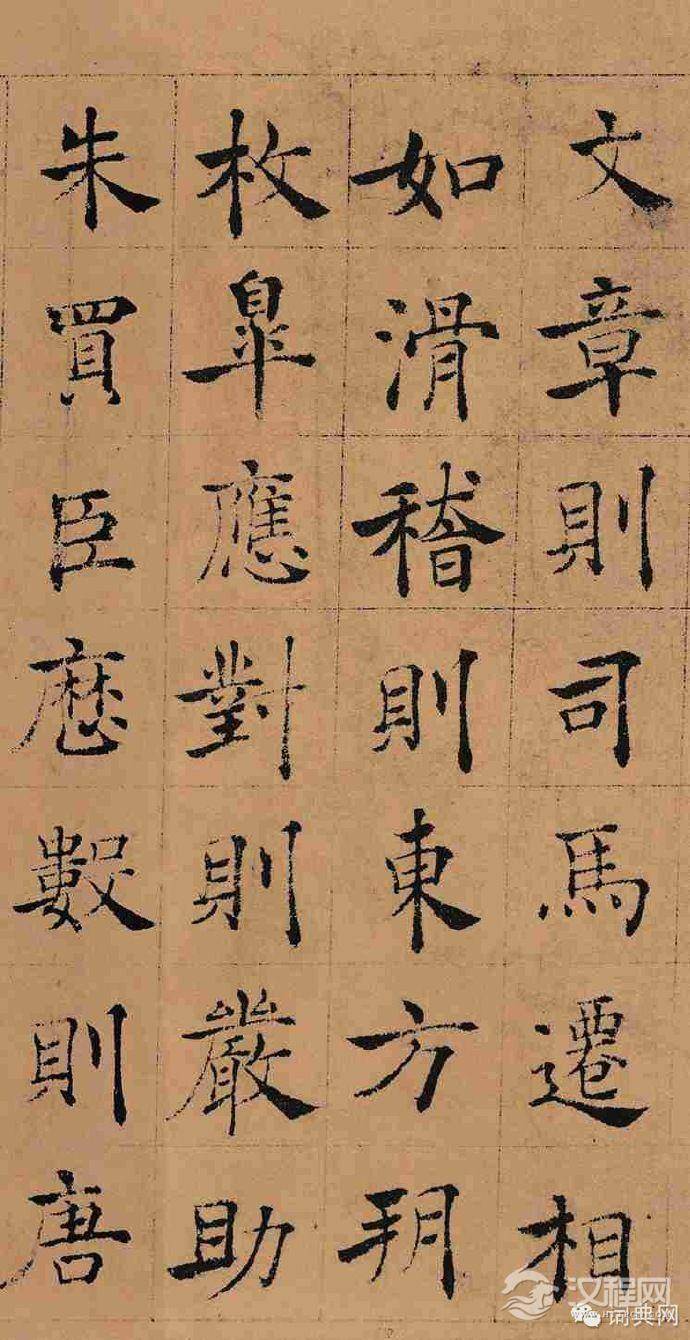 文章則司馬遷相
如滑稽則東方朔
枚皐應對則嚴助
朱買臣歷數則唐
汉程网
词典网